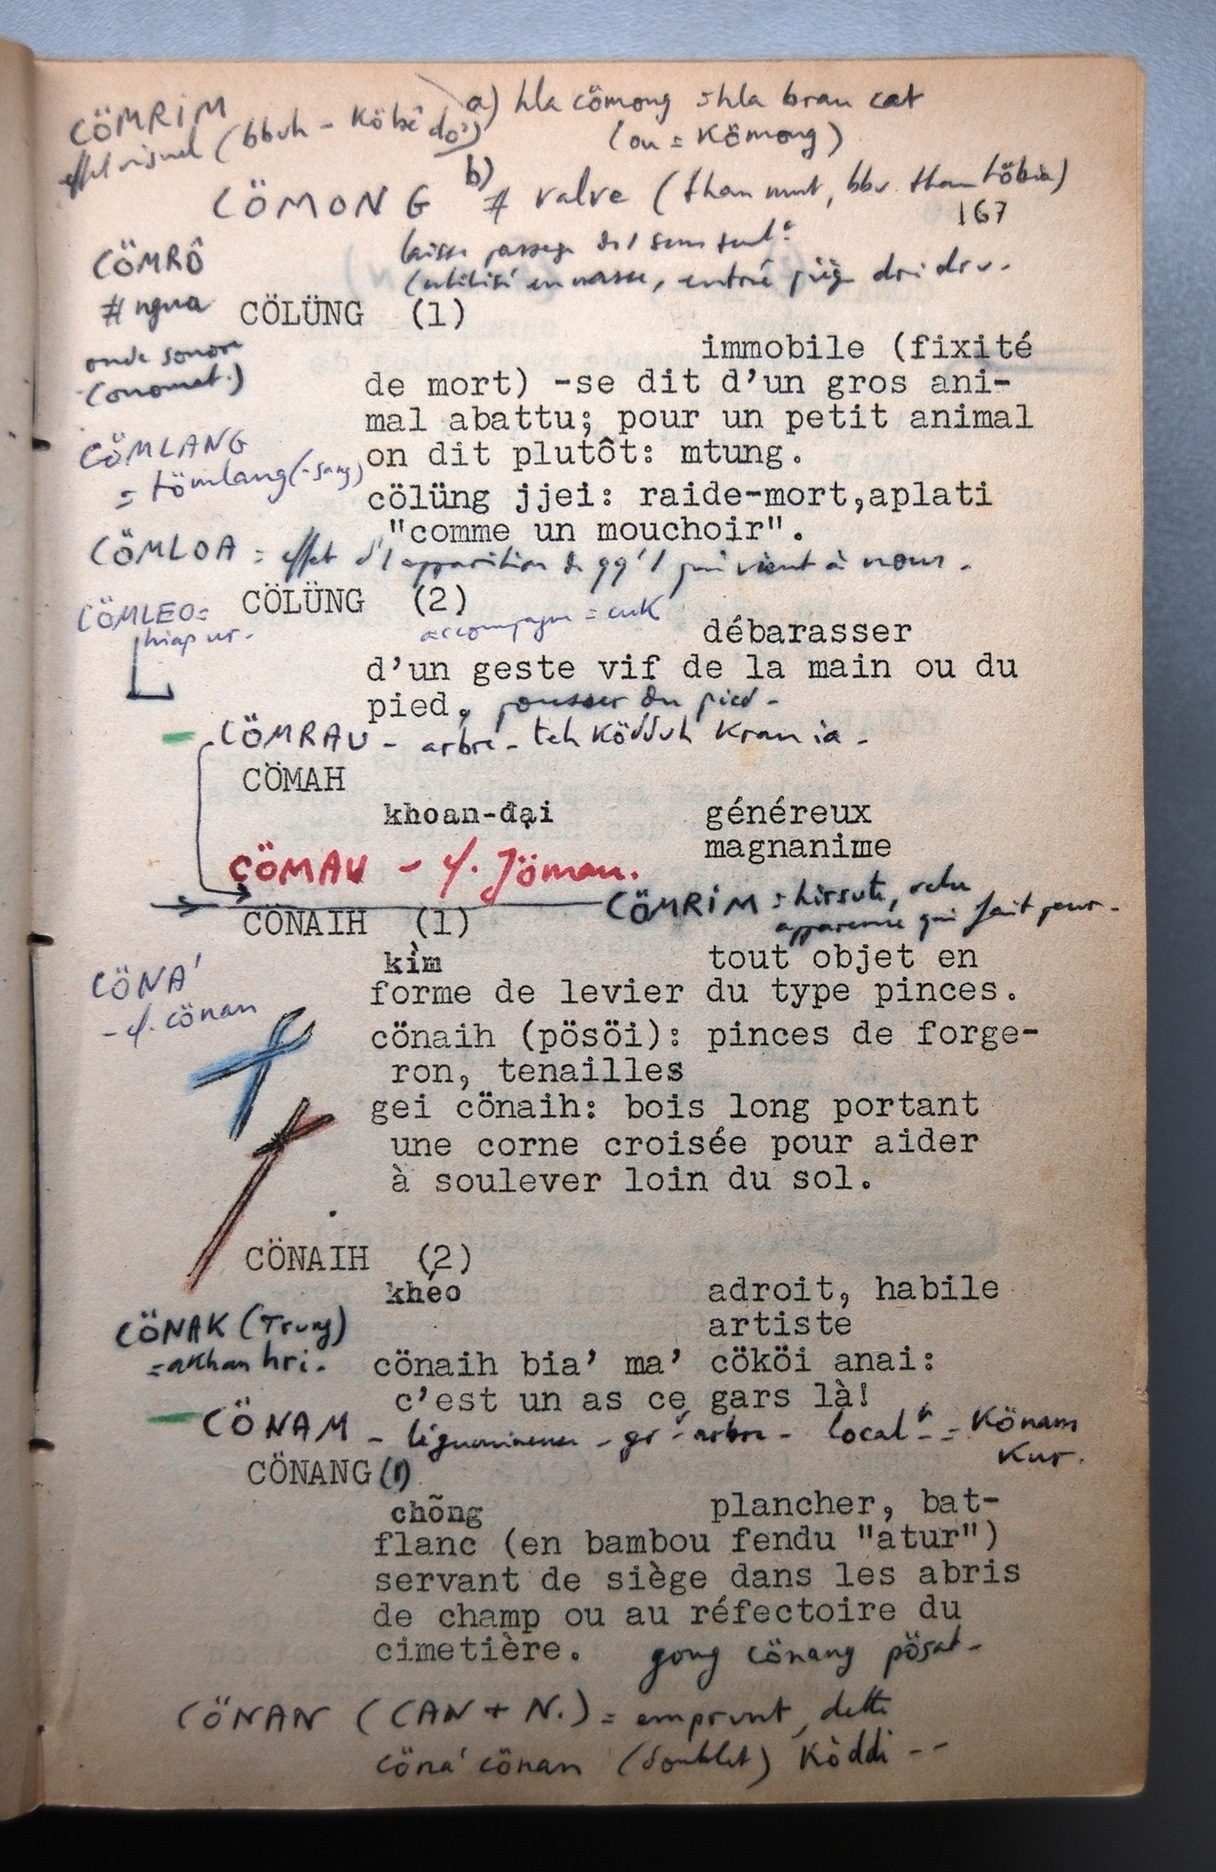 CÖMRIM
a) hla cömong = hla bran cat
effet visuel (bbuh - Köbê dơ)
(ou = Kömong)
CÖMONG
b) # valve (than mut, bbv. than töbia)
167
CÖMRÔ
# ngua
onde sonore
(onomat.)
laisse passage ds 1 sens seult
(utilisé en nasse, entrée piège
CÖLÜNG (1)
immobile (fixité
de mort) -se dit d'un gros ani-
mal abattu; pour un petit animal
on dit plutôt: mtung.
CÖMLANG
= tömlang (-sang)
cölüng jjei: raide-mort,aplati
"comme un mouchoir".
CÖMLOA = effet d'1 apparition de qq'1 qui vient à nous.
CÖMLEO =
hiap ur.
CÖLÜNG (2)
accompagne = cuk
débarasser
d'un geste vif de la main ou du
pied, pousser du pied -
CÖMRAU - arbre - teh Ködduh Kran ia -
CÖMAH
khoan-đại
généreux
magnanime
CÖMAU - cf. Jömau.
CÖMRIM = hirsute,
apparence qui fait peur -
CÖNAIH (1)
kìm
tout objet en
forme de levier du type pinces.
CÖNA'
- cf. cönan
cönaih (pösöi): pinces de forge-
ron, tenailles
gei cönaih: bois long portant
une corne croisée pour aider
à soulever loin du sol.
CÖNAIH (2)
khéo
adroit, habile
artiste
CÖNAK (Trung)
= akhan hri.
cönaih bia' ma' cököi anai:
c'est un as ce gars là!
CÖNAM - légumineuse - gd arbre - local = Könam
Kur.
CÖNANG (1)
chõng
plancher, bat-
flanc (en bambou fendu "atur")
servant de siège dans les abris
de champ ou au réfectoire du
cimetière. gong cönang pösat -
CÖNAN (CAN + N.) = emprunt, dette
cöna' cönan (doublet) Köddi --